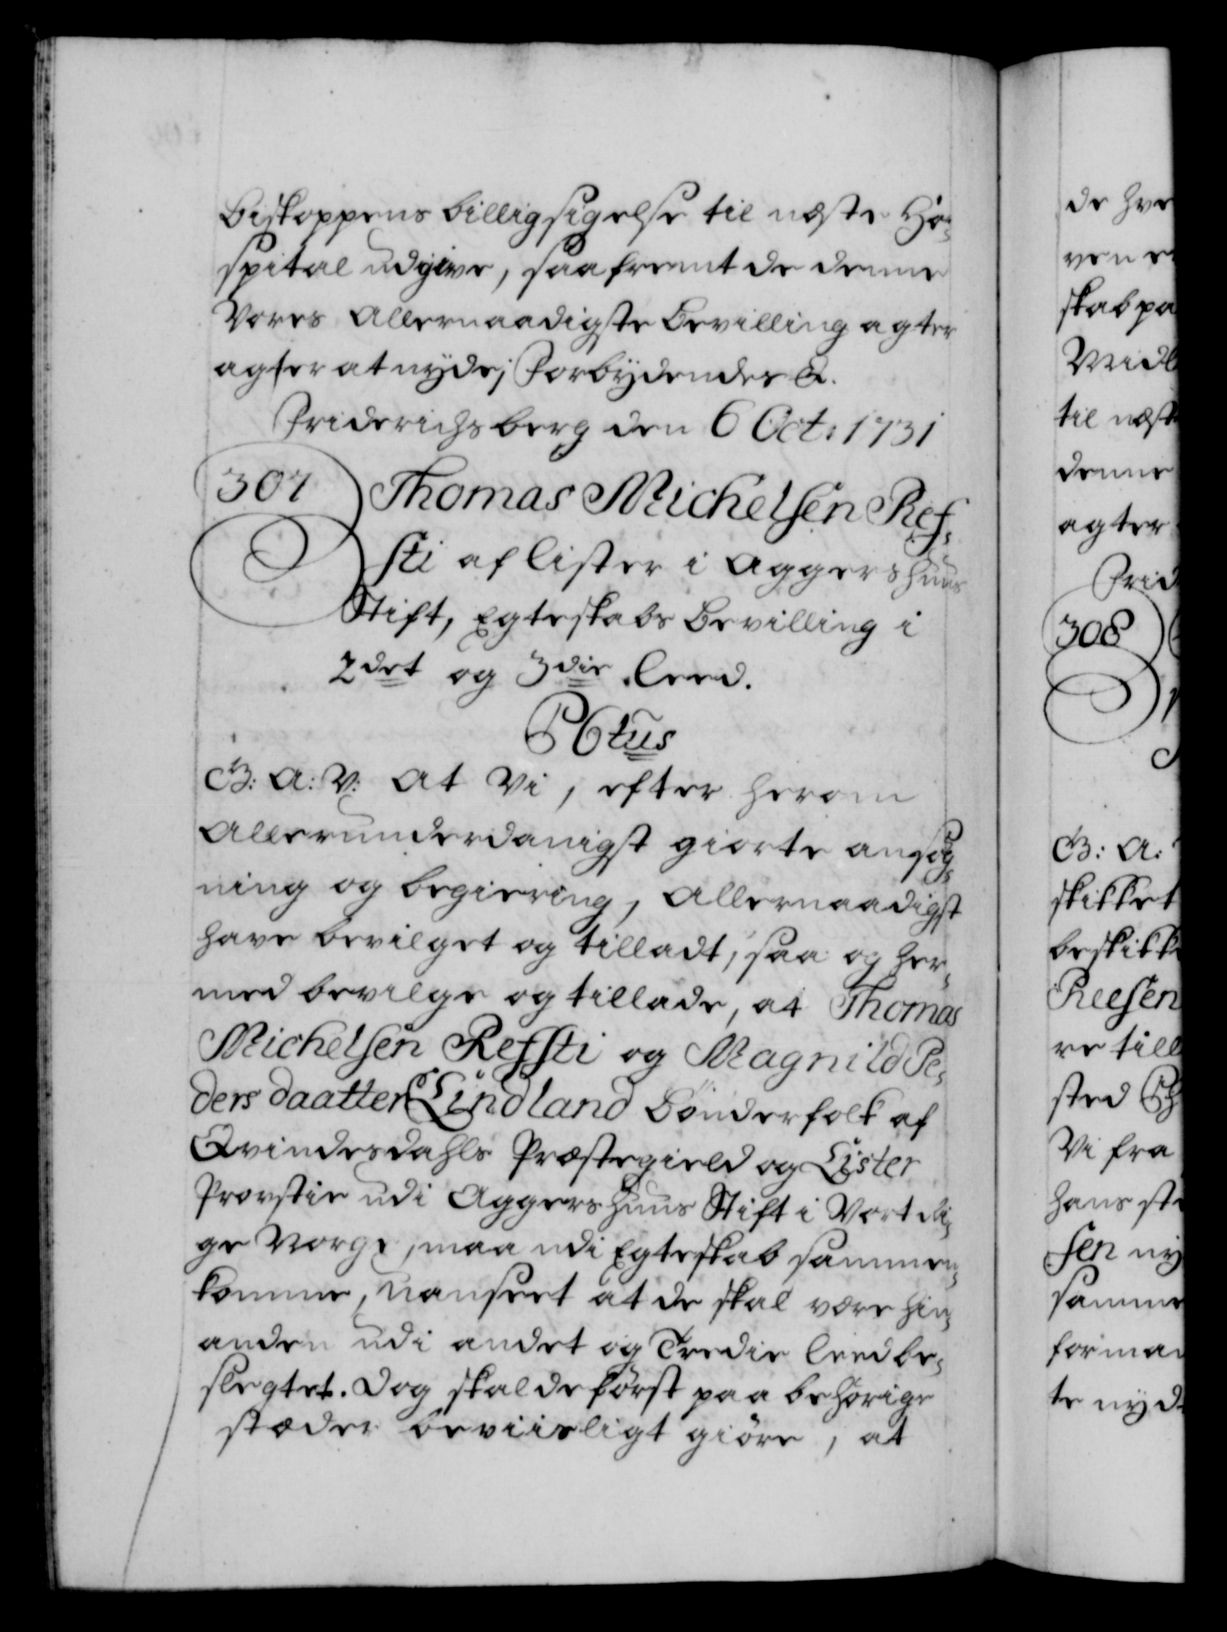 Biskoppens billigsigelse til næste Ho-
spital udgive, saafremt de denne
Vores Allernaadigste Bevilling agter
agter at nyde; Forbydendes &.
Friderichsberg den 6 Oct: 1731
307 Thomas Michelsen Ref-
sti af Lister i Aggershuus
Stift, Egteskabs Bevilling i
2det og 3die Leed.
C6tus
G: A: V: At Vi, efter herom
Allerunderdanigst giorte ansøg-
ning og begiering, Allernaadigst
have bevilget og tilladt, saa og her-
med bevilge og tillade, at Thomas
Michelsen Refsti og Magnild Pe-
dersdaatter Lindland Bønderfolk af
Qvindesdahls Præstegield og Lister
Provstie udi Aggershuus Stift i Vort Ri-
ge Norge, maa udi Egteskab sammen-
komme, Uanseet at de skal være hin-
anden udi andet og Tredie Leed be-
slegtet. Dog skal de først paa behørige
stæder beviisligt giøre, at
de hve
ven e
skab pa
Midl
til næst
denne
agter
Frid
308
G: A:
skikket
beskikk
Reesen
re till
sted
Vi fra
hans st
sen ny
samme
forman
te nyd